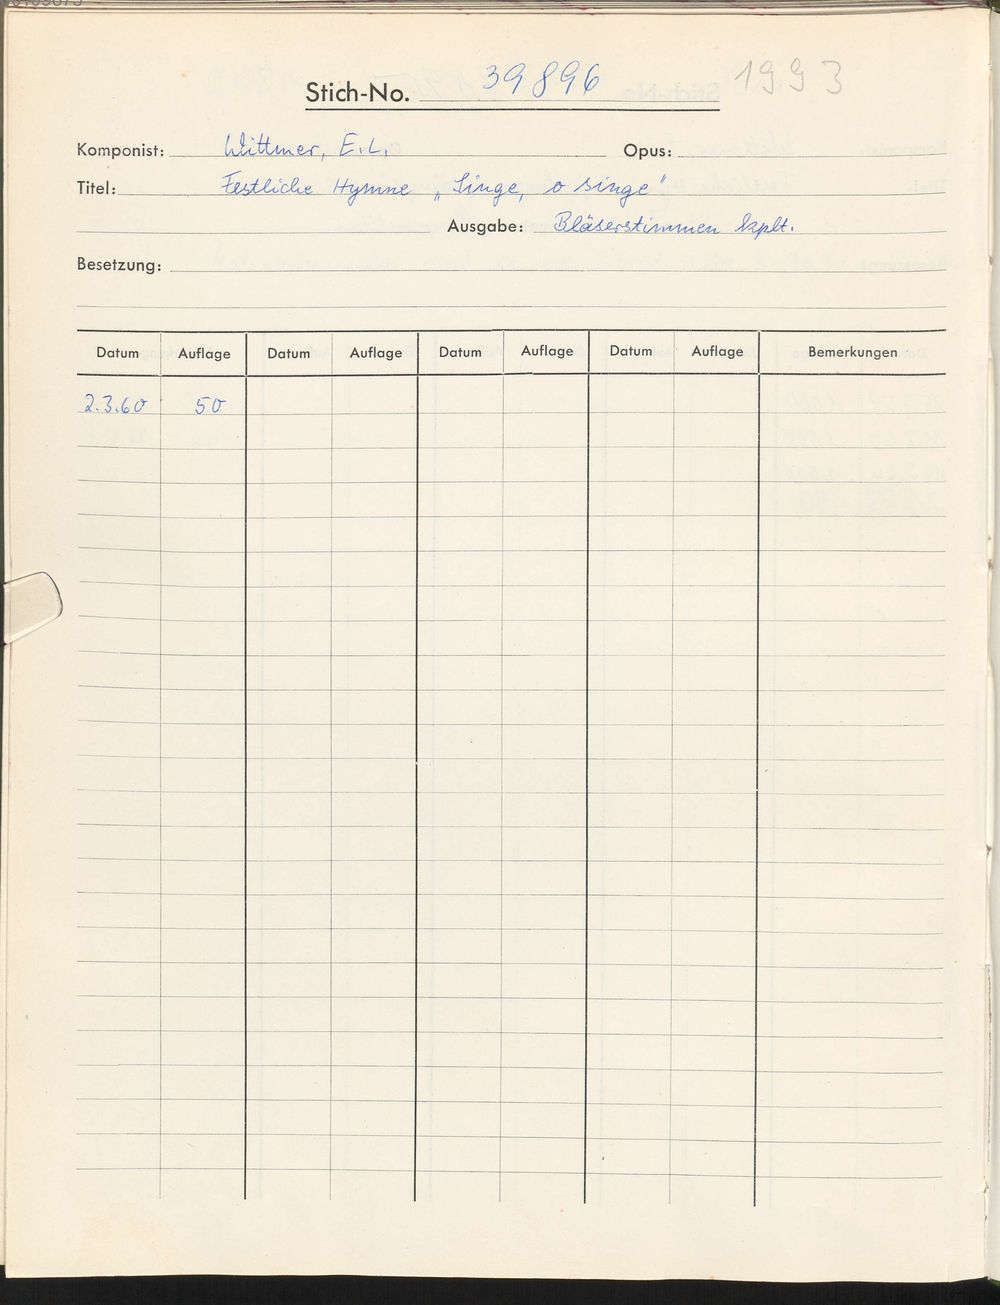 Stich-No. 39896 1993
Komponist: Wittmer, E.L. Opus:
Titel: Festliche Hymne „Singe, o singe"
Ausgabe: Bläserstimmen kplt.
Besetzung:
Datum Auflage Datum Auflage Datum Auflage Datum Auflage Bemerkungen
2.3.60 50